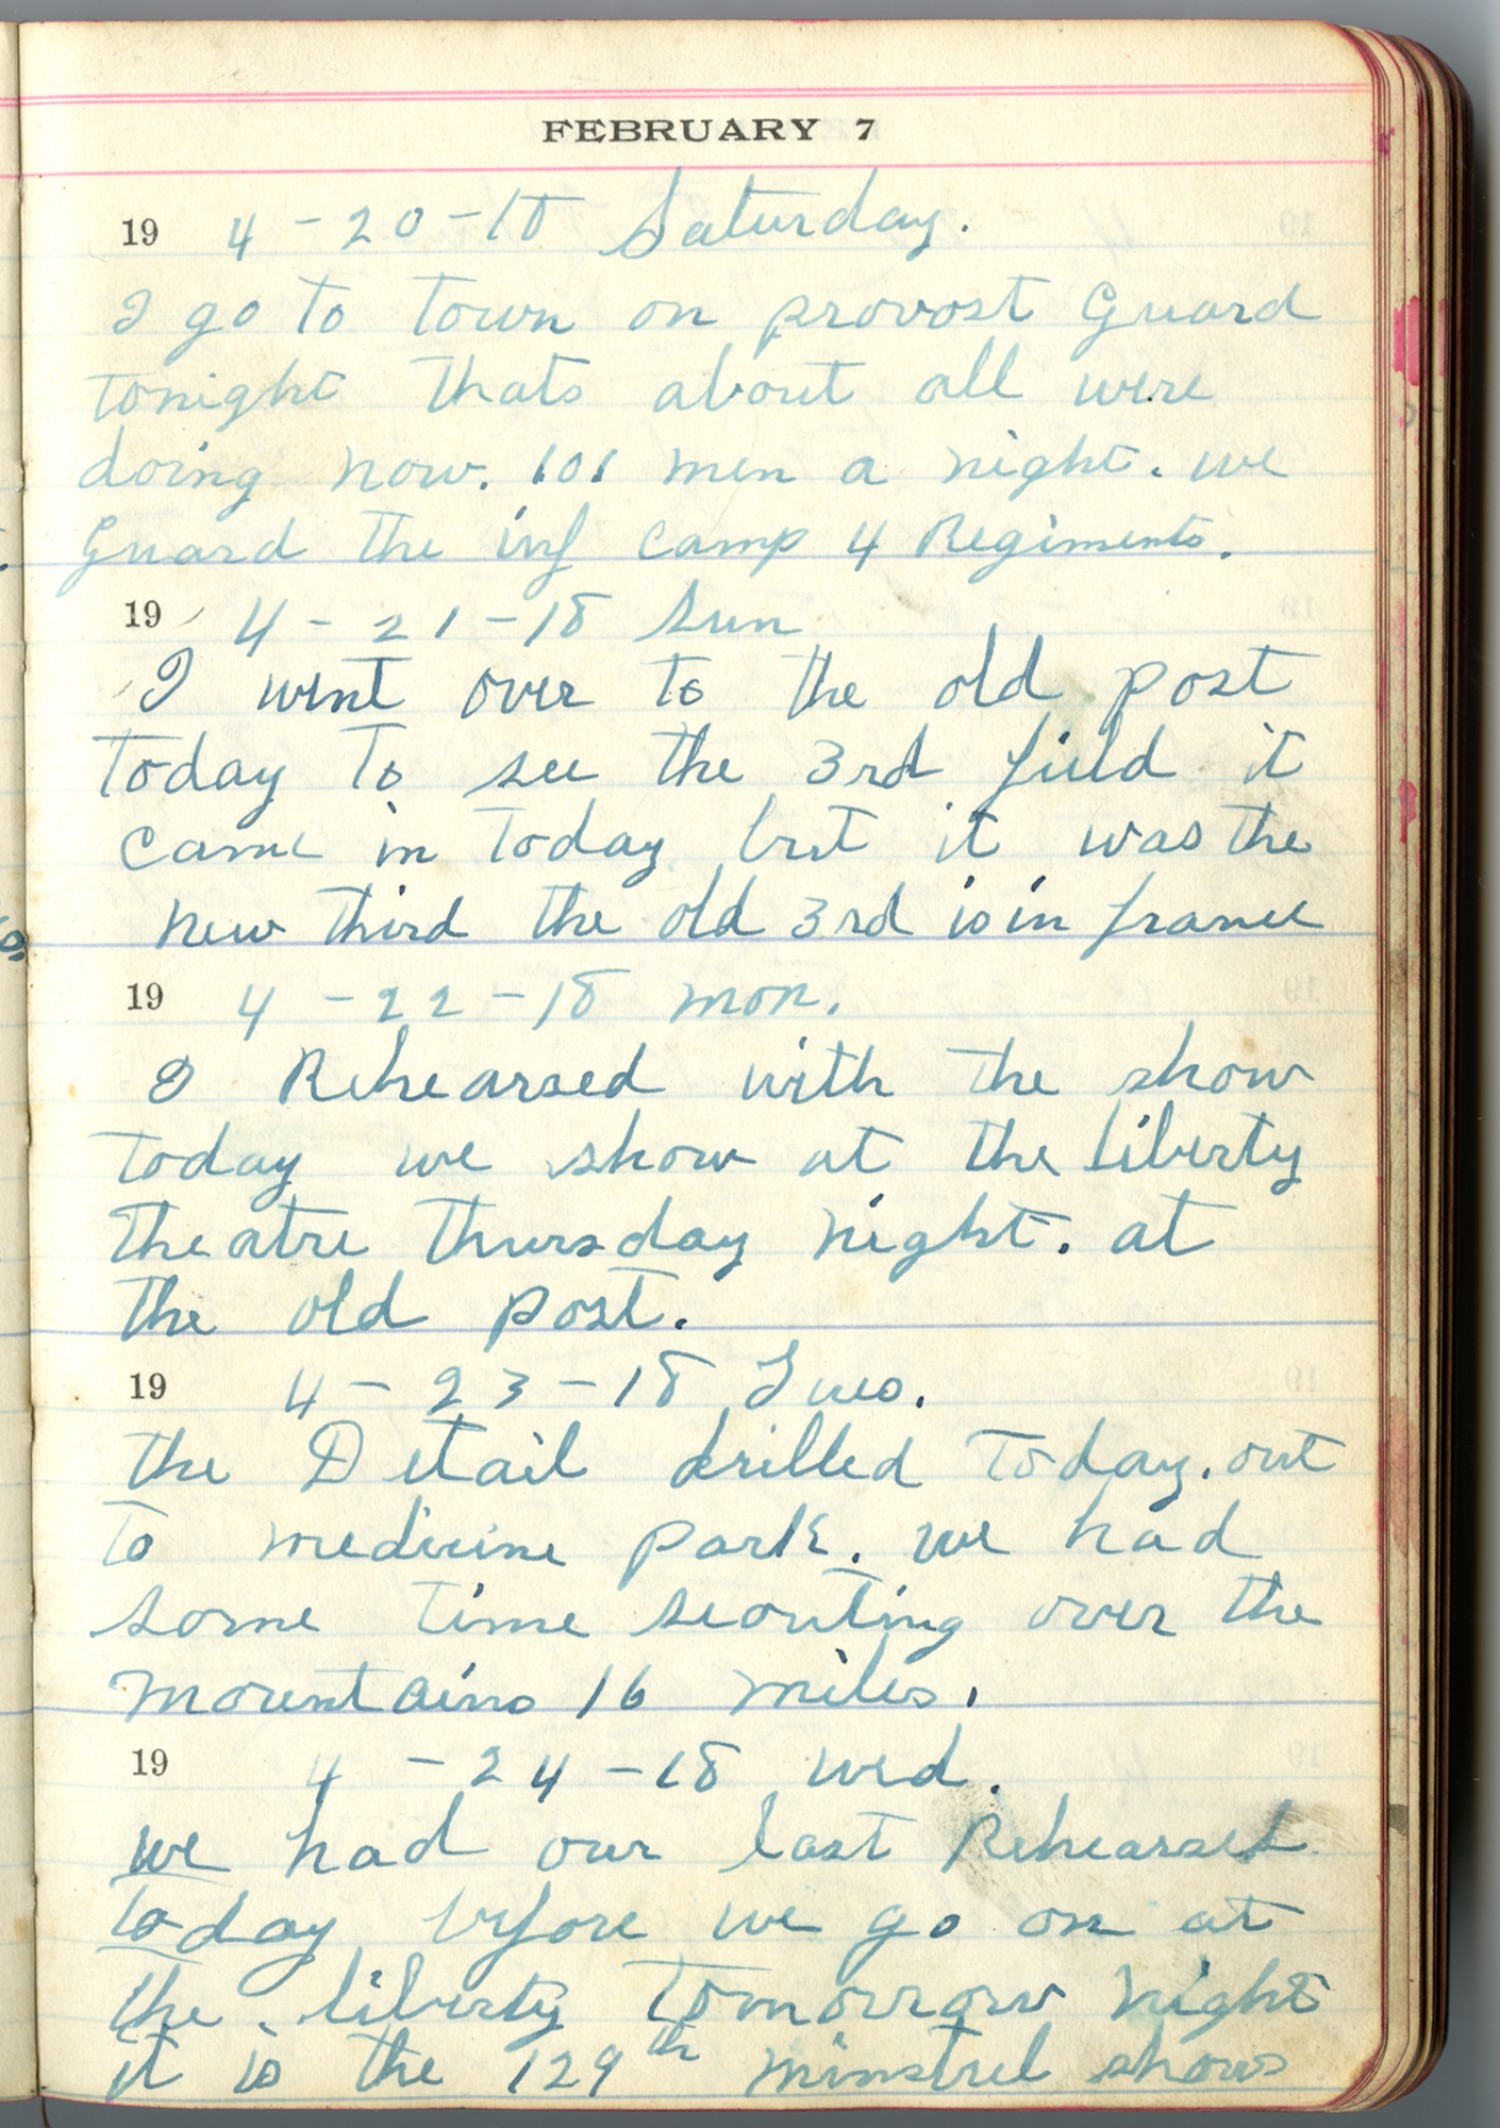 FEBRUARY 7
19 4-20-18 Saturday.
I go to town on provost Guard
tonight thats about all were
doing now. 101 men a night. we
Guard the inf camp 4 Regiments.
19 4-21-18 Sun
I went over to the old post
today to see the 3rd field it
came in today but it was the
new third the old 3rd is in france
19 4-22-18 mon.
I Rehearsed with the show
today we show at the liberty
theatre thursday night. at
the old post.
19 4-23-18 Tues.
the Detail drilled today. out
to medicine park. we had
some time scouting over the
mountains 16 miles.
19 4-24-18 wed.
we had our last Rehearsel
today before we go on at
the liberty tomorrow night
it is the 129th minstrel shows